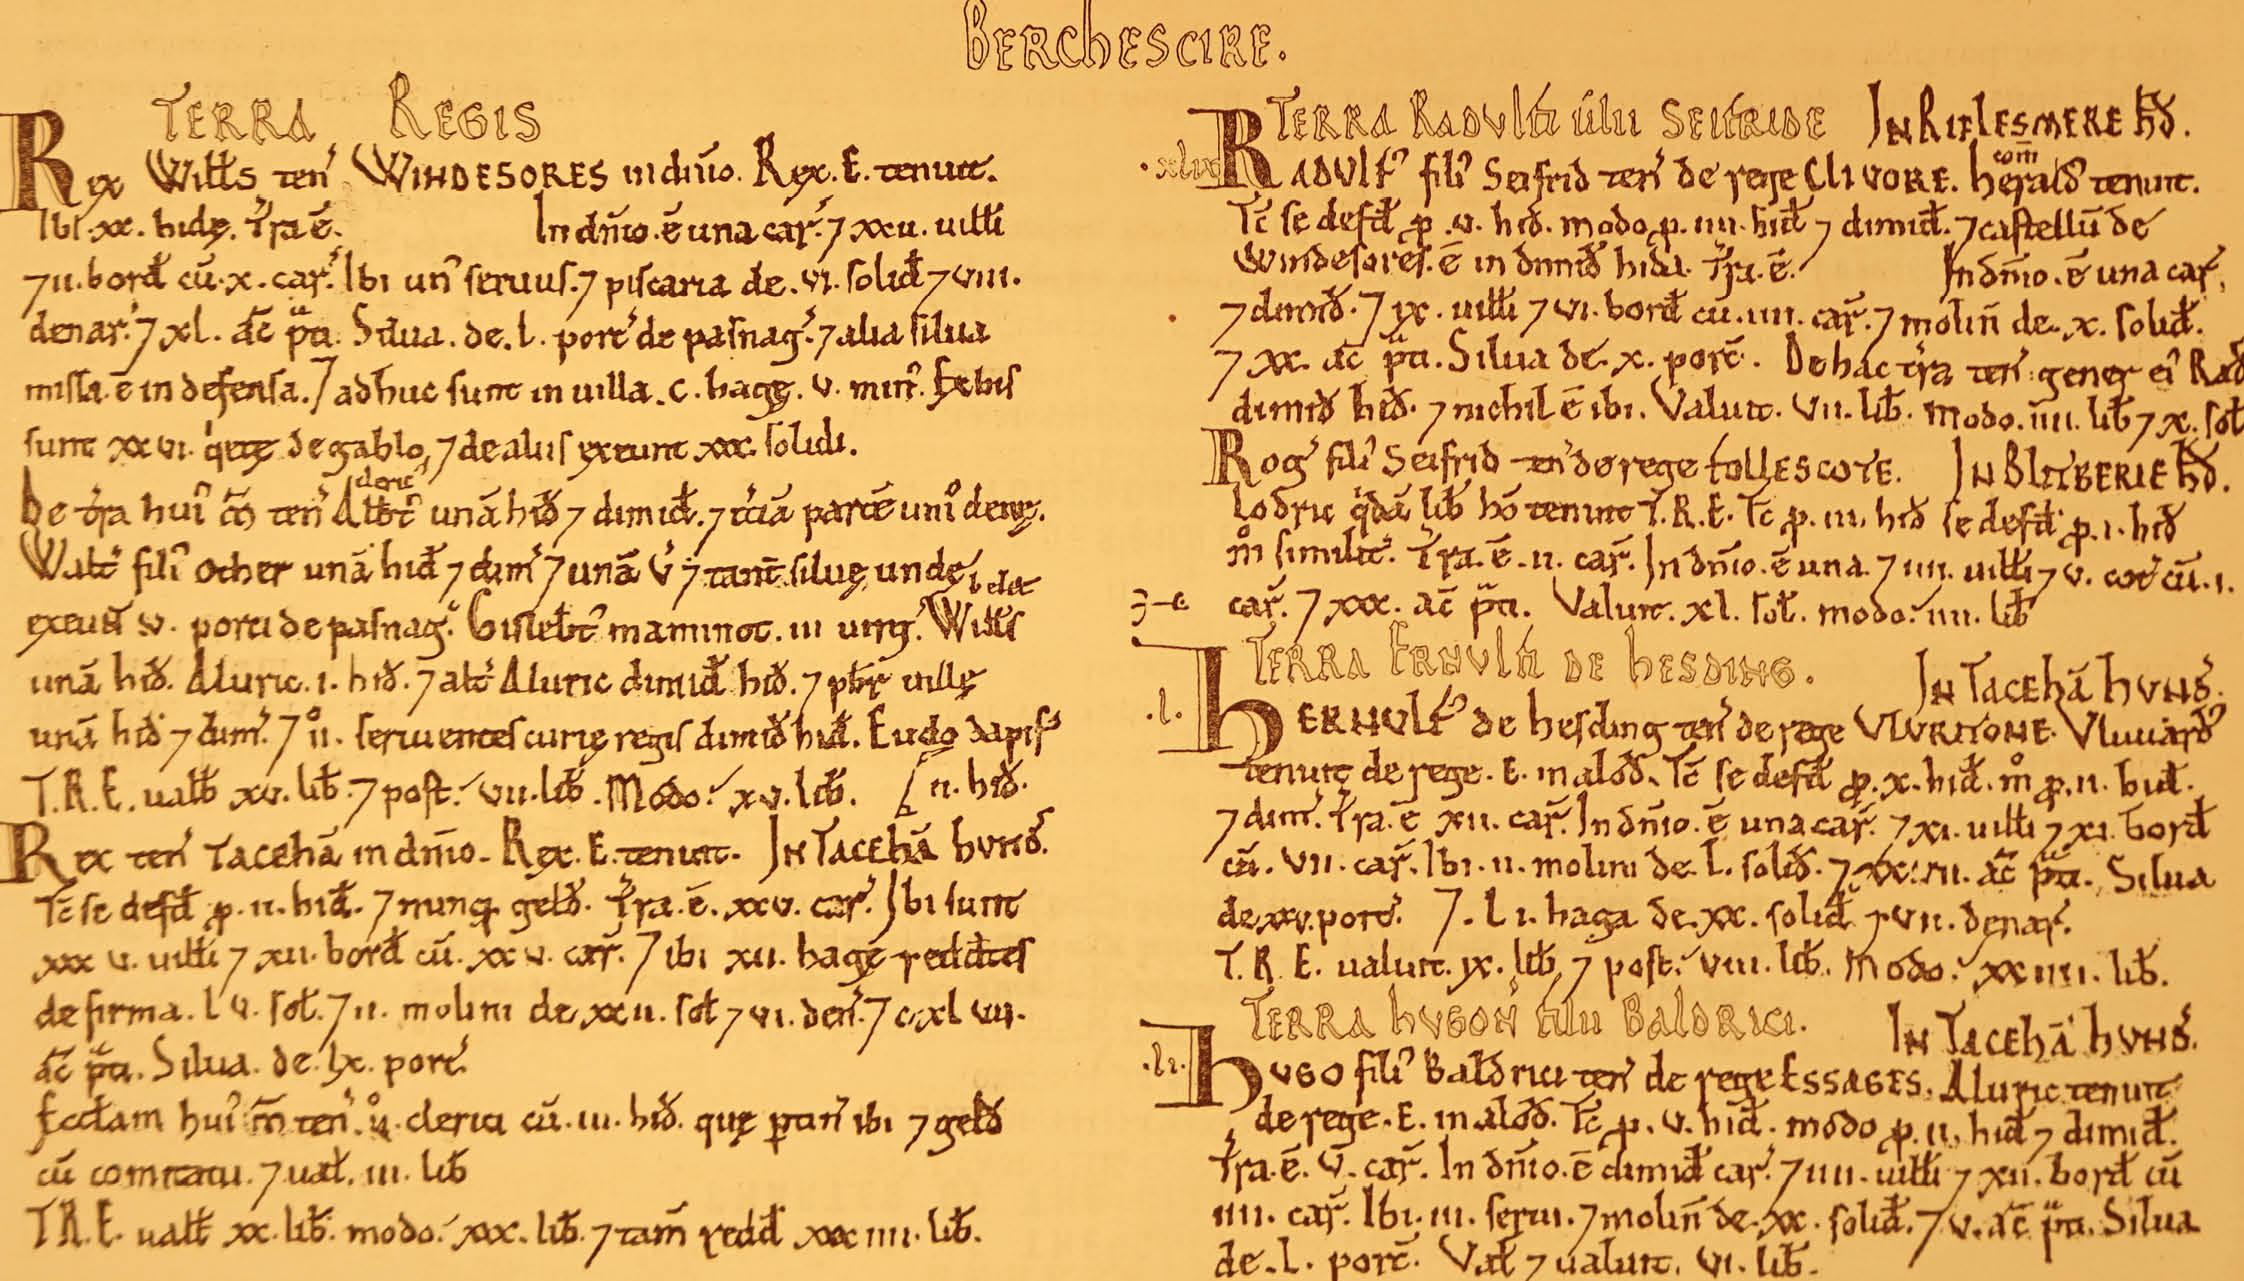 BERCHESCIRE.
TERRA REGIS
Rex Wiłłs ten̄ WINDESORES in dn̄io. Rex. E. tenuit.
Ibi. xx. hidę. T̄ra ē. In dn̄io. ē una car̄. ⁊ xxii. uiłłi
⁊ ii. bord cū. x. car̄. Ibi un' seruus. ⁊ piscaria de. vi. solid ⁊ viii.
denar'. ⁊ xl. ac̄ p̄ti. Silua. de. l. porc' de pasnag'. ⁊ alia silua
missa. ē in defensa. ⁊ adhuc sunt in uilla. c. hagę. v. min'. Ex his
sunt xxvi. q'etę de gablo, ⁊ de aliis exeunt xxx. solidi.
De t̄ra hui' m̄ ten̄ Alb̄t' cleric' unā hid ⁊ dimid. ⁊ t'ciā partē uni' denę.
Walt' fili' Other unā hid ⁊ dim' ⁊ unā v' ⁊ tant̄ siluę unde
exeuN̄ v. porci de pasnag'. Gisleb̄t' maminot. iii uirg'. Wiłłs belet
unā hid. Aluric. i. hid. ⁊ alt' Aluric dimid hid. ⁊ pb̄r uillę
unā hid ⁊ dim'. ⁊ ii. seruientes curię regis dimid hid. Eudo dapif'
T.R.E. ualb xv. lib. ⁊ post: vii. lib. Modo: xv. lib. ii. hid.
Rex ten̄ TACEHĀ in dn̄io. Rex. E. tenuit. IN TACEHĀ HVND.
Tc̄ se defd p. ii. hid. ⁊ nunq, geld. T̄ra. ē. xxv. car̄. Ibi sunt
xxxv. uiłłi ⁊ xii. bord cū. xxv. car̄. ⁊ ibi xii. hagę reddtes
de firma. lv. soł. ⁊ ii. molini de xxii. soł ⁊ vi. den̄. ⁊ cxlvii.
ac̄ p̄ti. Silua. de. lx. porc'
Ecclam hui' m̄ ten̄. ii. clerici cū. iii. hid. quę ptin̄ ibi ⁊ geld
cū comitatu. ⁊ uał. iii. lib
T.R.E. uałt xx. lib. modo: xxx. lib. ⁊ tam̄ redd xxxiiii. lib.
TERRA RADVLFI filii SEIFRIDE IN RIPLESMERE HD.
.xlix. RADVLF' fili' Seifrid ten' de rege CLIVORE. herald' com̄ tenuit.
Tc̄ se defd p. v. hid. modo p. iiii. hid ⁊ dimid. ⁊ castellū de
Windesores. ē in dimid hida. T̄ra. ē. In dn̄io. ē una car̄,
⁊ dimid. ⁊ ix. uiłłi ⁊ vi. bord cū. iiii. car̄. ⁊ molin̄ de. x. solid.
⁊ xx. ac̄ p̄ti. Silua de. x. porc̄. De hac t̄ra ten̄ gener ei' Rad
dimid hid. ⁊ nichil ē ibi. Valuit. vii. lib. modo. iiii. lib ⁊ x. soł
Rog' fili' Seifrid ten' de rege FOLLESCOTE. IN BLITBERIE HD.
Lodric q'dā lib hō tenuit T.R.E. Tc̄ p. iii. hid se defd. p. i. hid
m̊ similit'. T̄ra. ē. ii. car̄. In dn̄io. ē una. ⁊ iiii. uiłłi ⁊ v. cot' cū. i.
car̄. ⁊ xxx. ac̄ p̄ti. Valuit. xl. soł. modo: iiii. lib
TERRA ERNVLFI DE HESDING. IN TACEHĀ HVND.
.l. HERNVLF' de hesding ten' de rege VLVRITONE. Vluuard'
tenuit de rege. E. in alod. Tc̄ se defd p. x. hid. m̊ p. ii. hid.
⁊ dim'. T̄ra. ē xii. car̄. In dn̄io. ē una car̄. ⁊ xi. uiłłi ⁊ xi. bord
cū. vii. car̄. Ibi. ii. molini de. L. solid. ⁊ ac̄ p̄ti. Silua
de xxv. porc'. ⁊. i. haga de. xx. solid ⁊ vii. denar'.
T.R.E. ualuit. ix. lib. ⁊ post: viii. lib. Modo: xxiiii. lib.
TERRA HVGON' filii BALDRICI. IN TACEHĀ HVND.
.li. HVGO fili' Baldrici ten' de rege ESSAGES. Aluric tenuit
de rege. E. in alod. Tc̄ p. v. hid. modo p. ii. hid ⁊ dimid.
T̄ra. ē. v. car̄. In dn̄io. ē dimid car̄. ⁊ iiii. uiłłi ⁊ xii. bord cū
iiii. car̄. Ibi. iii. serui. ⁊ molin̄ de. xx. solid. ⁊ v. ac̄ p̄ti. Silua
de. l. porc̄. Vał ⁊ ualuit. vi. lib.